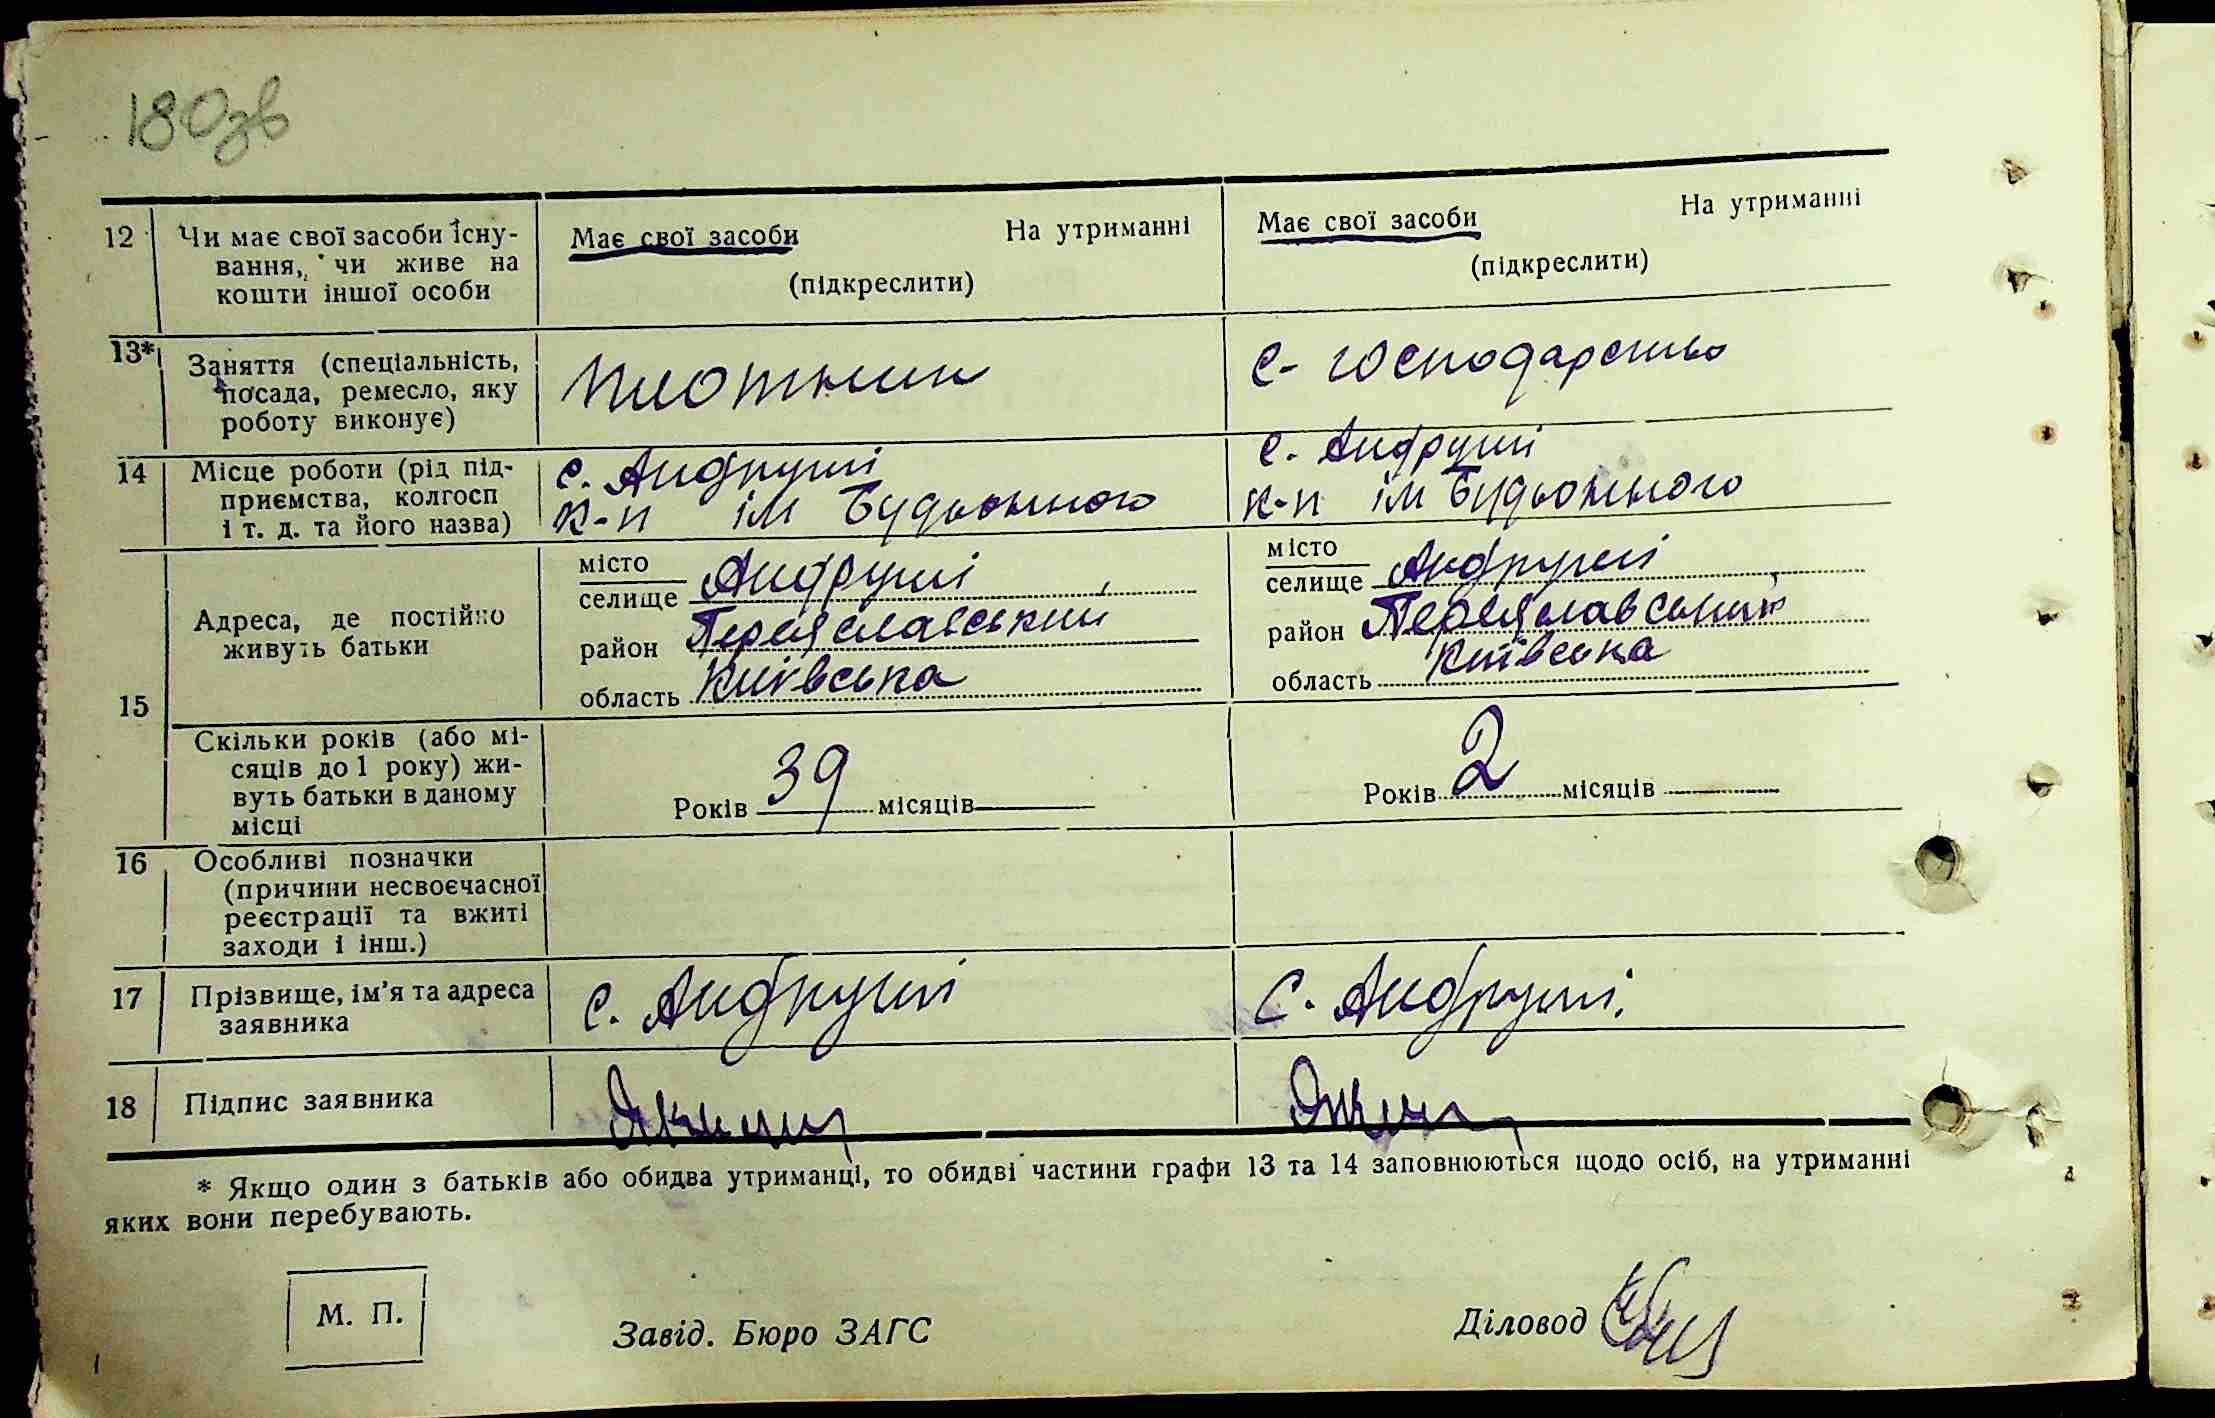 180зв
12 Чи має свої засоби існу-
вання, чи живе на
кошти іншої особи
Має свої засоби На утриманні
(підкреслити)
Має свої засоби На утриманні
(підкреслити)
13* Заняття (спеціальність,
посада, ремесло, яку
роботу виконує)
Плотник
с-господарство
14 Місце роботи (рід під-
приємства, колгосп
і т. д. та його назва)
с. Андруші
к-п ім Будьонного
с. Андруші
к-п ім Будьонного
15 Адреса, де постійно
живуть батьки
місто
селище Андруші
район Переяславський
область Київська
місто
селище Андруші
район Переяславський
область Київська
Скільки років (або мі-
сяців до 1 року) жи-
вуть батьки в даному
місці
Років 39 місяців
Років 2 місяців
16 Особливі позначки
(причини несвоєчасної
реєстрації та вжиті
заходи і інш.)
17 Прізвище, ім'я та адреса
заявника
с. Андруші
с. Андруші.
18 Підпис заявника
* Якщо один з батьків або обидва утриманці, то обидві частини графи 13 та 14 заповнюються щодо осіб, на утриманні
яких вони перебувають.
М. П.
Завід. Бюро ЗАГС
Діловод